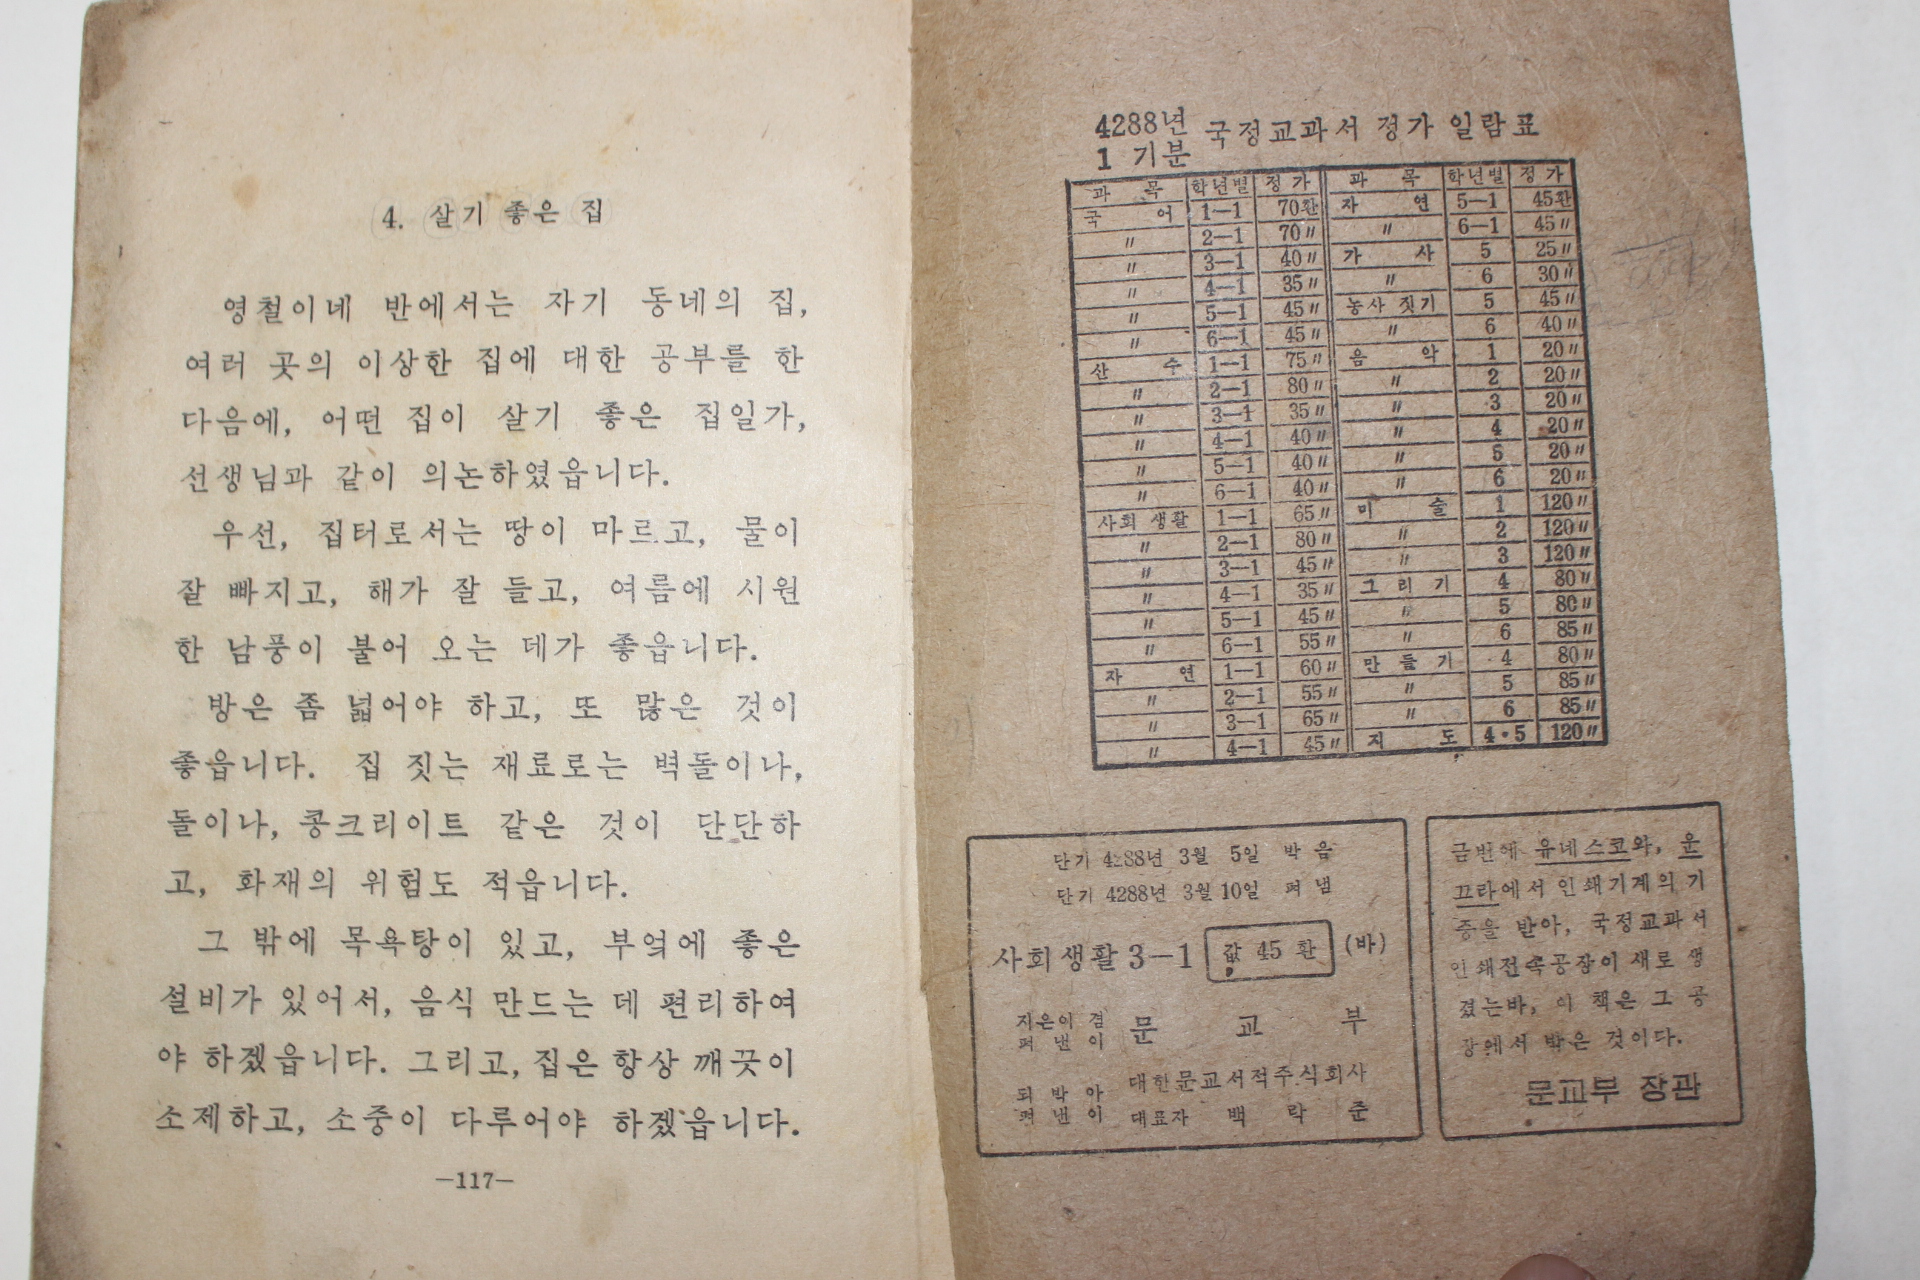 4. 살기 좋은 집
영철이네 반에서는 자기 동네의 집,
여러 곳의 이상한 집에 대한 공부를 한
다음에, 어떤 집이 살기 좋은 집일가,
선생님과 같이 의논하였읍니다.
우선, 집터로서는 땅이 마르고, 물이
잘 빠지고, 해가 잘 들고, 여름에 시원
한 남풍이 불어 오는 데가 좋읍니다.
방은 좀 넓어야 하고, 또 많은 것이
좋읍니다. 집 짓는 재료로는 벽돌이나,
돌이나, 콩크리이트 같은 것이 단단하
고, 화재의 위험도 적읍니다.
그 밖에 목욕탕이 있고, 부엌에 좋은
설비가 있어서, 음식 만드는 데 편리하여
야 하겠읍니다. 그리고, 집은 항상 깨끗이
소제하고, 소중이 다루어야 하겠읍니다.
—117—
4288년
1 기분
국정교과서 정가 일람표
과 목 학년별 정 가 과 목 학년별 정 가
국 어 1—1 70환 자 연 5—1 45환
〃 2—1 70〃 〃 6—1 45〃
〃 3—1 40〃 가 사 5 25〃
〃 4—1 35〃 〃 6 30〃
〃 5—1 45〃 농사 짓기 5 45〃
〃 6—1 45〃 〃 6 40〃
산 수 1—1 75〃 음 악 1 20〃
〃 2—1 80〃 〃 2 20〃
〃 3—1 35〃 〃 3 20〃
〃 4—1 40〃 〃 4 20〃
〃 5—1 40〃 〃 5 20〃
〃 6—1 40〃 〃 6 20〃
사회 생활 1—1 65〃 미 술 1 120〃
〃 2—1 80〃 〃 2 120〃
〃 3—1 45〃 〃 3 120〃
〃 4—1 35〃 그 리 기 4 80〃
〃 5—1 45〃 〃 5 80〃
〃 6—1 55〃 〃 6 85〃
자 연 1—1 60〃 만 들 기 4 80〃
〃 2—1 55〃 〃 5 85〃
〃 3—1 65〃 〃 6 85〃
〃 4—1 45〃 지 도 4·5 120〃
단기 4288년 3월 5일 박음
단기 4288년 3월 10일 펴냄
사회생활 3—1 값 45 환 (바)
지은이 겸
펴 낸 이
문 교 부
되 박 아
펴 낸 이
대한문교서적주식회사
대표자 백 락 준
금번에 유네스코와, 운
끄라에서 인쇄기계의 기
증을 받아, 국정교과서
인쇄전속공장이 새로 생
겼는바, 이 책은 그 공
장에서 박은 것이다.
문교부 장관